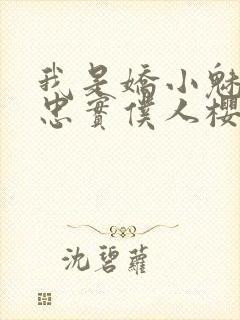 我是嬌小魅
忠實僕人櫻
沈碧蘿